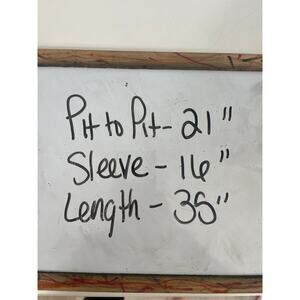 Pit to Pit - 21"
Sleeve - 16"
Length - 35"